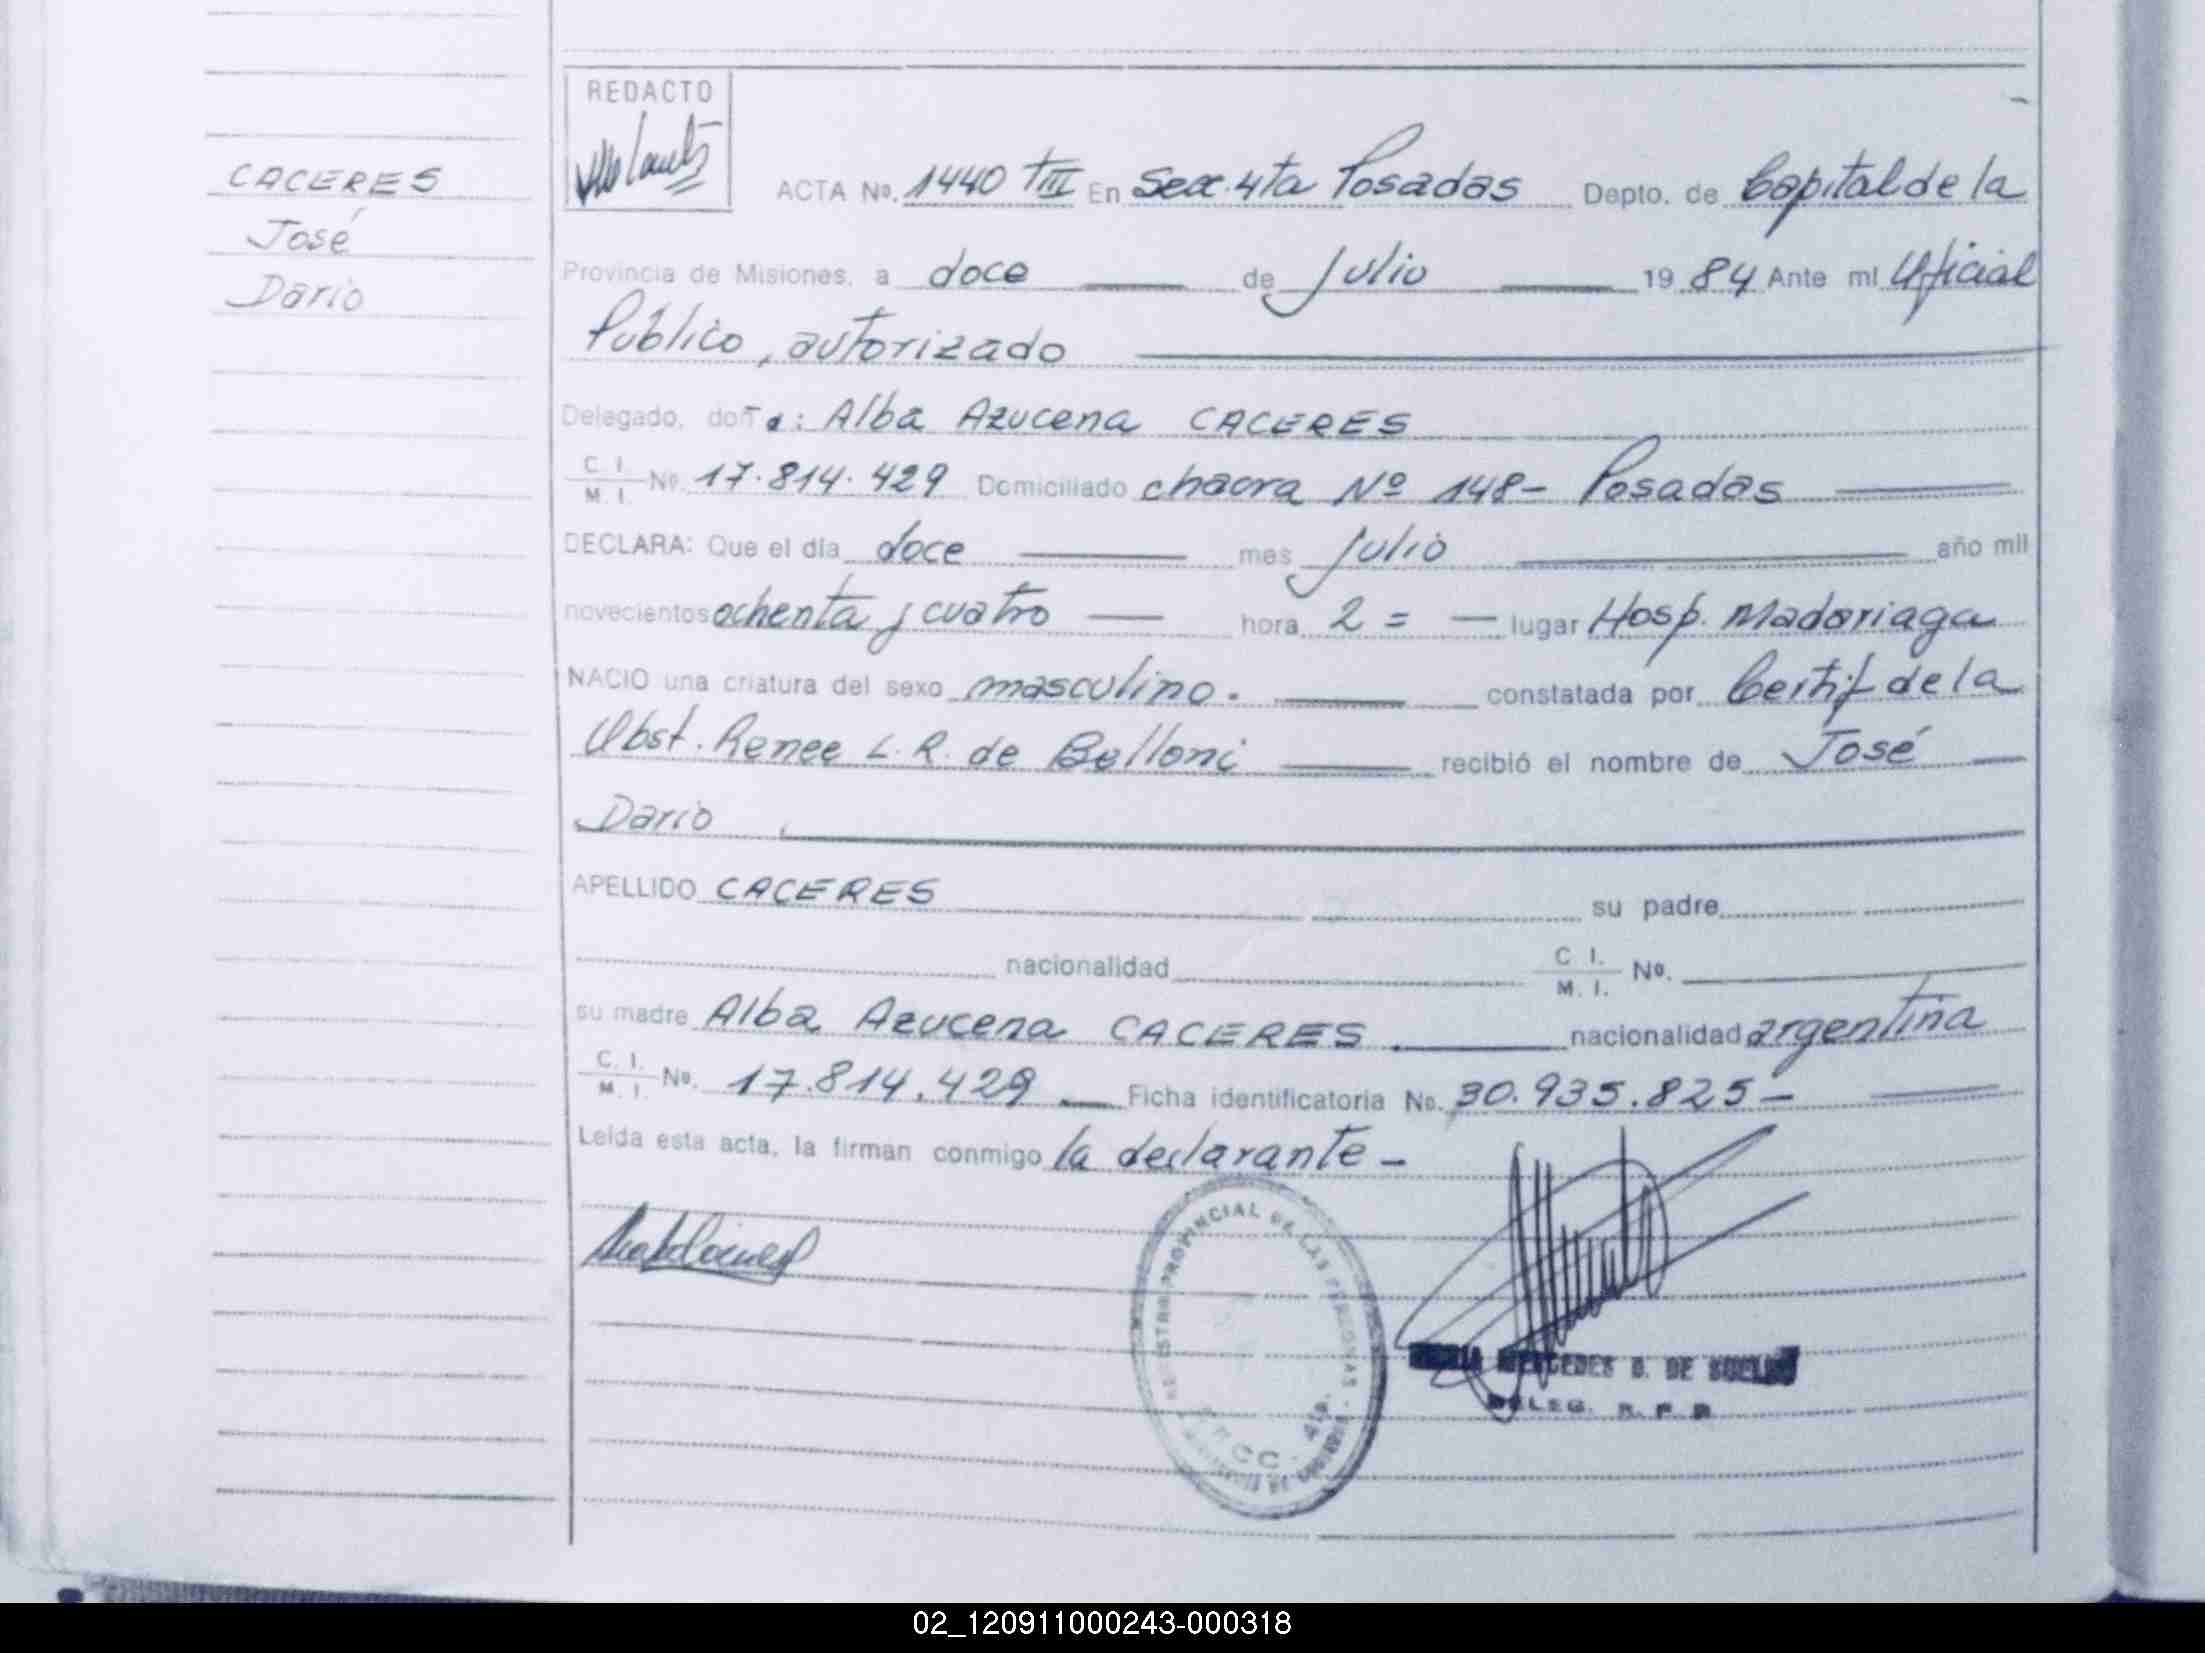 CACERES
José
Dario
REDACTO
ACTA No. 1440 TIII En Secc. 4ta Posadas Depto. de Capital de la
Provincia de Misiones, a doce de Julio 1984 Ante mi Oficial
Público, autorizado
Delegado, doña: Alba Azucena CACERES
C. I. M. I. No. 17.814.429 Domiciliado chacra Nº 148- Posadas
DECLARA: Que el día doce mes Julio año mil
novecientos ochenta y cuatro hora 2 = lugar Hosp. Madariaga
NACIO una criatura del sexo masculino. constatada por Certif de la
Obst. Renee L. R. de Belloni recibió el nombre de José
Dario
APELLIDO CACERES su padre
nacionalidad C I. M. I. No.
su madre Alba Azucena CACERES nacionalidad argentina
C. I. M. I. No. 17.814.429 Ficha identificatoria No. 30.935.825-
Leída esta acta, la firman conmigo la declarante-
PROVINCIAL DE LAS PERSONAS
MERCEDES DE
DELEG. R. P. P.
02_120911000243-000318